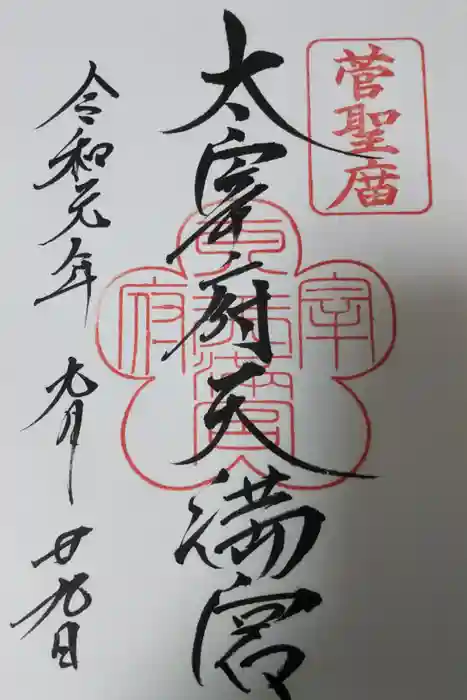 菅聖廟
太宰府天満宮
令和元年 九月 廿九日